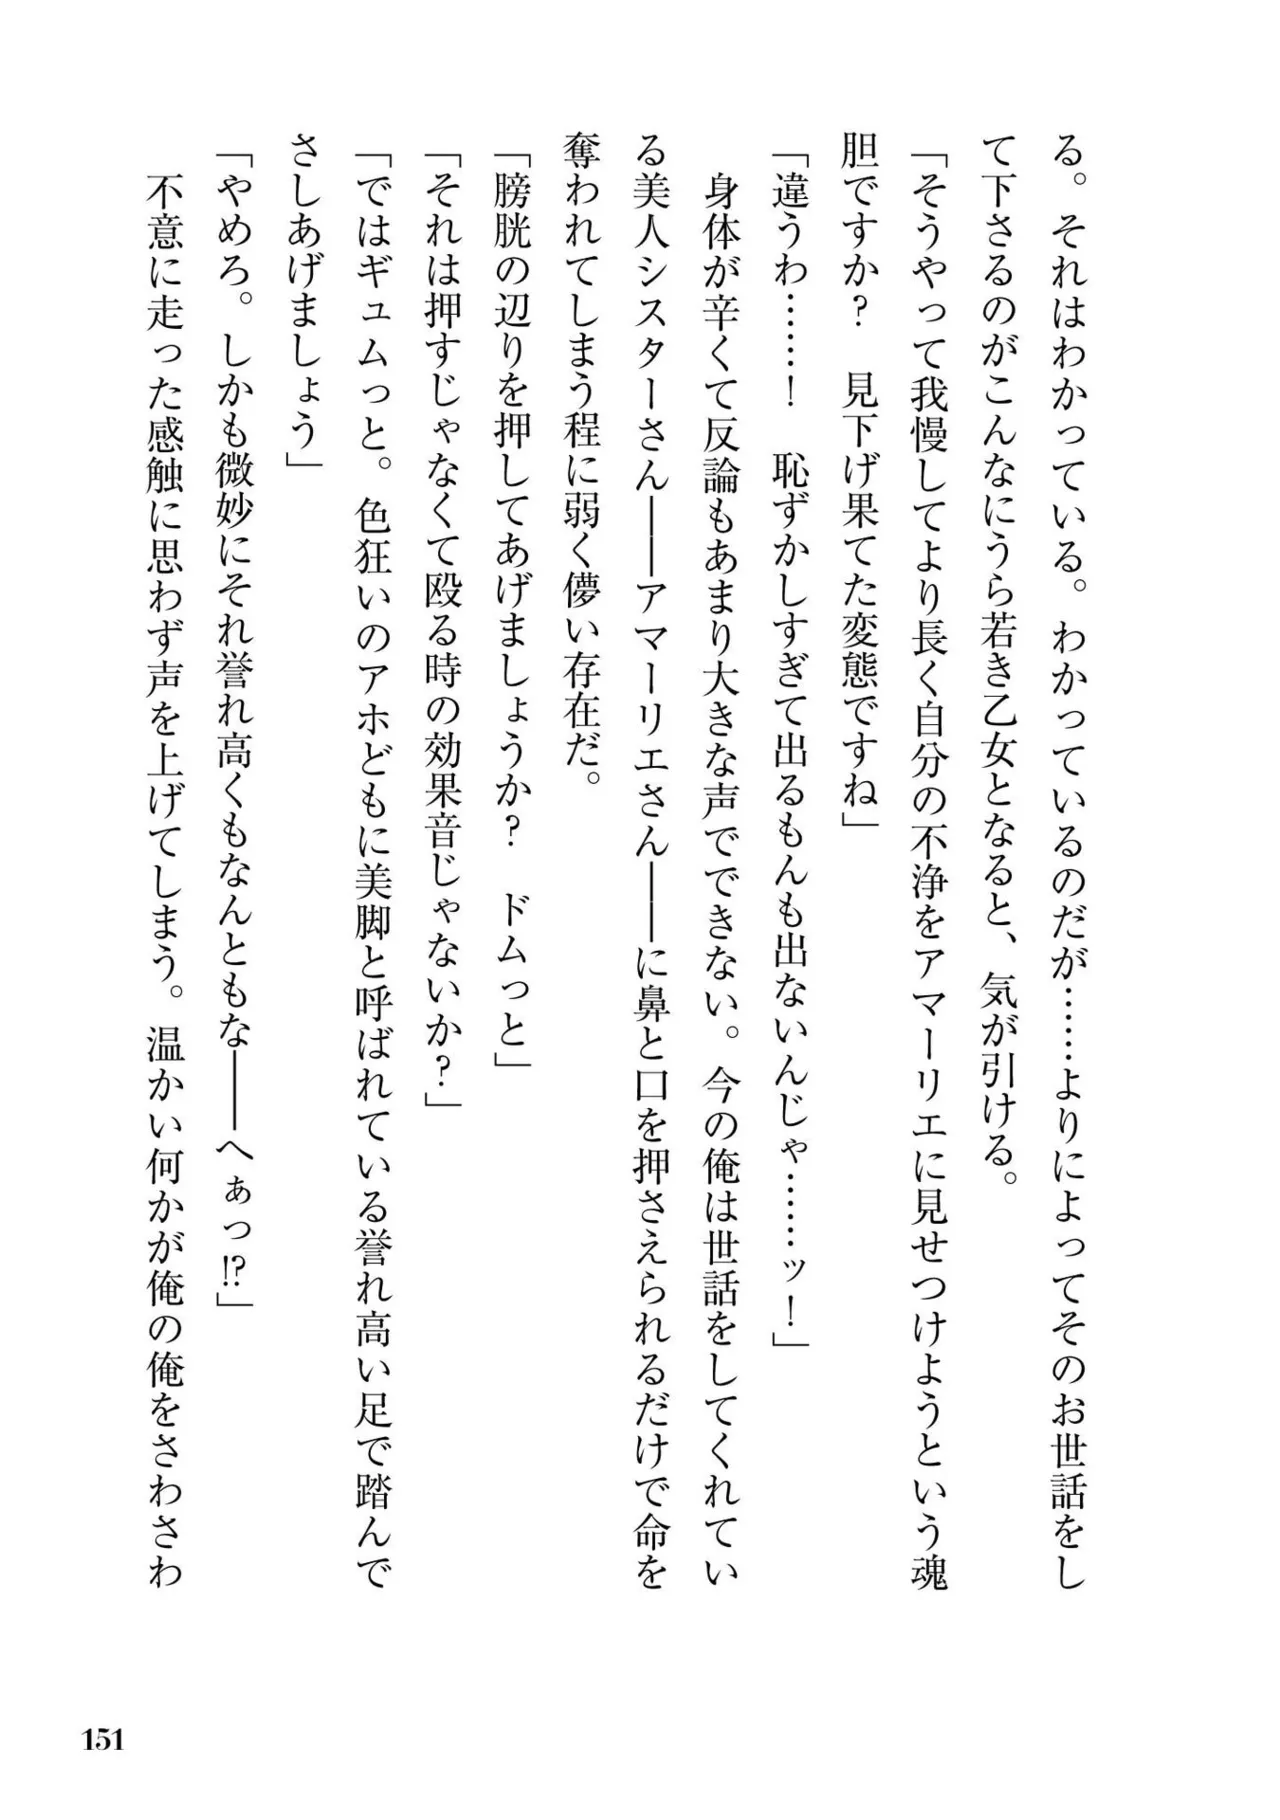 る。それはわかっている。わかっているのだが……よりによってそのお世話をし
て下さるのがこんなにうら若き乙女となると、気が引ける。
「そうやって我慢してより長く自分の不浄をアマーリエに見せつけようという魂
胆ですか？　見下げ果てた変態ですね」
「違うわ……！　恥ずかしすぎて出るもんも出ないんじゃ……ッ！」
　身体が辛くて反論もあまり大きな声でできない。今の俺は世話をしてくれてい
る美人シスターさん――アマーリエさん――に鼻と口を押さえられるだけで命を
奪われてしまう程に弱く儚い存在だ。
「膀胱の辺りを押してあげましょうか？　ドムっと」
「それは押すじゃなくて殴る時の効果音じゃないか？」
「ではギュムっと。色狂いのアホどもに美脚と呼ばれている誉れ高い足で踏んで
さしあげましょう」
「やめろ。しかも微妙にそれ誉れ高くもなんともな――へぁっ!?」
　不意に走った感触に思わず声を上げてしまう。温かい何かが俺の俺をさわさわ
151